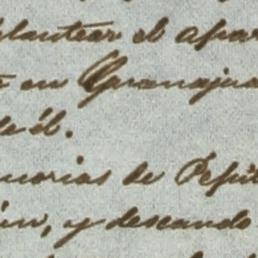 plantear el apar
en Guanajua
de él.
morias de Pepi
ún, y deseando